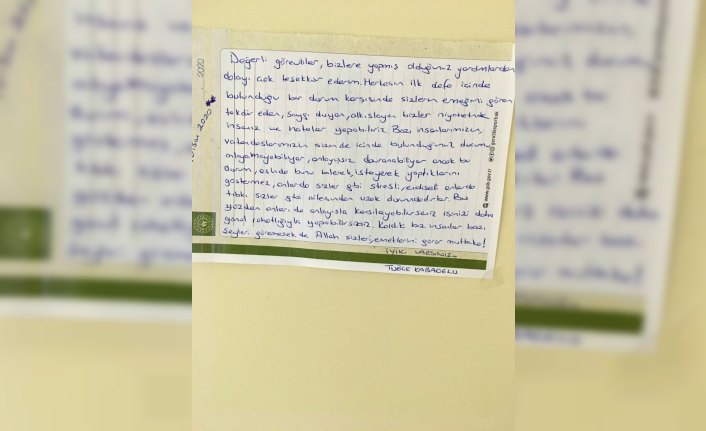 Değerli görevliler, bizlere yapmış olduğunuz yardımlardan
dolayı çok teşekkür ederim. Herkesin ilk defa içinde
bulunduğu bir durum karşısında sizlerin emeğini gören
takdir eden, saygı duyan, alkışlayan bizler nihayetinde
insanız ve hatalar yapabiliriz. Bazı insanlarımızın,
vatandaşlarımızın sizinde içinde bulunduğunuz durumu
anlayamayabiliyor, anlayışsız davranabiliyor ancak bu
durum, aslında bunu bilerek, isteyerek yaptıklarını
göstermez, onlarda sizler gibi stresli, endişeli onlarda
tıpkı sizler gibi ailesinden uzak durmadırlar. Bu
yüzden onları da anlayışla karşılayabilirseniz işinizi daha
gönül rahatlığıyla yapabilirsiniz. Kaldıki biz insanlar bazı
şeyleri göremesek de Allah sizleri, emeklerini görür mutlaka!
İYİKİ VARSINIZ...
TUĞÇE KABAOĞLU
2020
2020
www.gsb.gov.tr